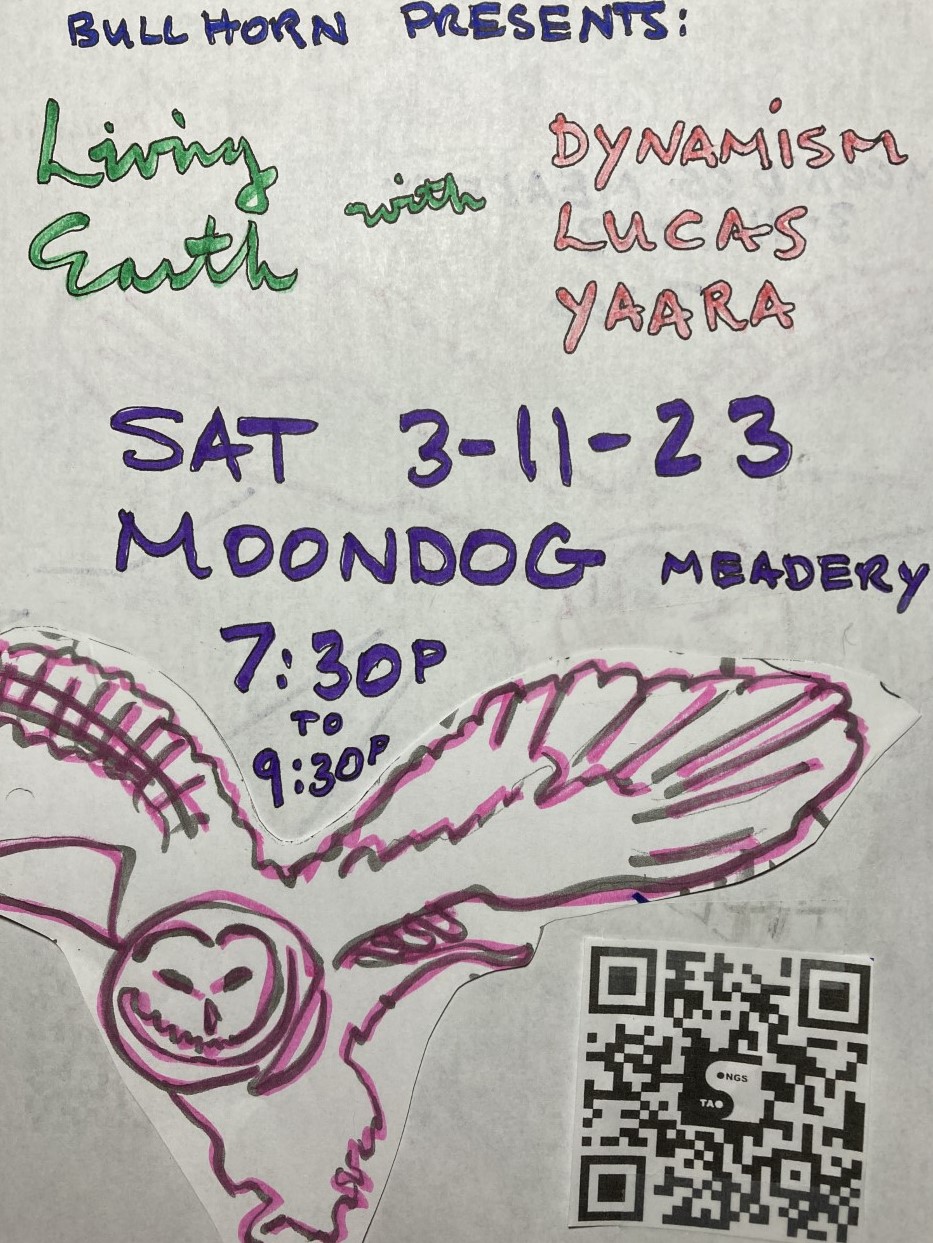 BULLHORN PRESENTS:
Living
Earth
with
DYNAMISM
LUCAS
YAARA
SAT 3-11-23
MOONDOG MEADERY
7:30P
TO
9:30P
SONGS
TAO